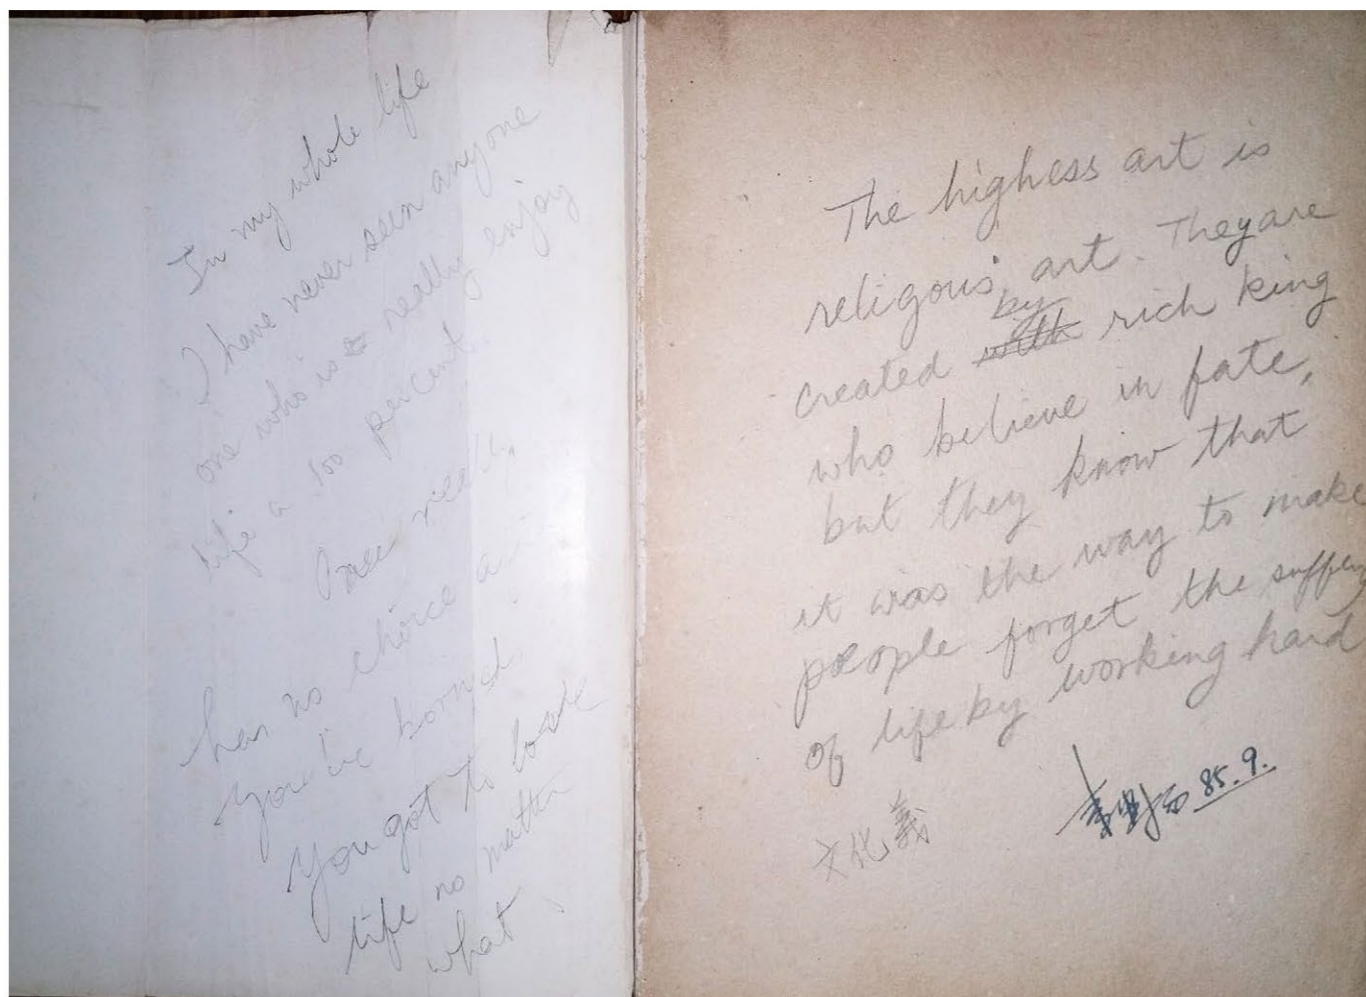 In my whole life
I have never seen anyone
one who is really enjoy
life a 100 percent.
has no choice
You've borned
You got to
life no matter
what
The highess art is
religous art. They are
by
created with rich king
who believe in fate,
but they know that
it was the way to make
people forget the
of life by working hard
文化義
85.9.